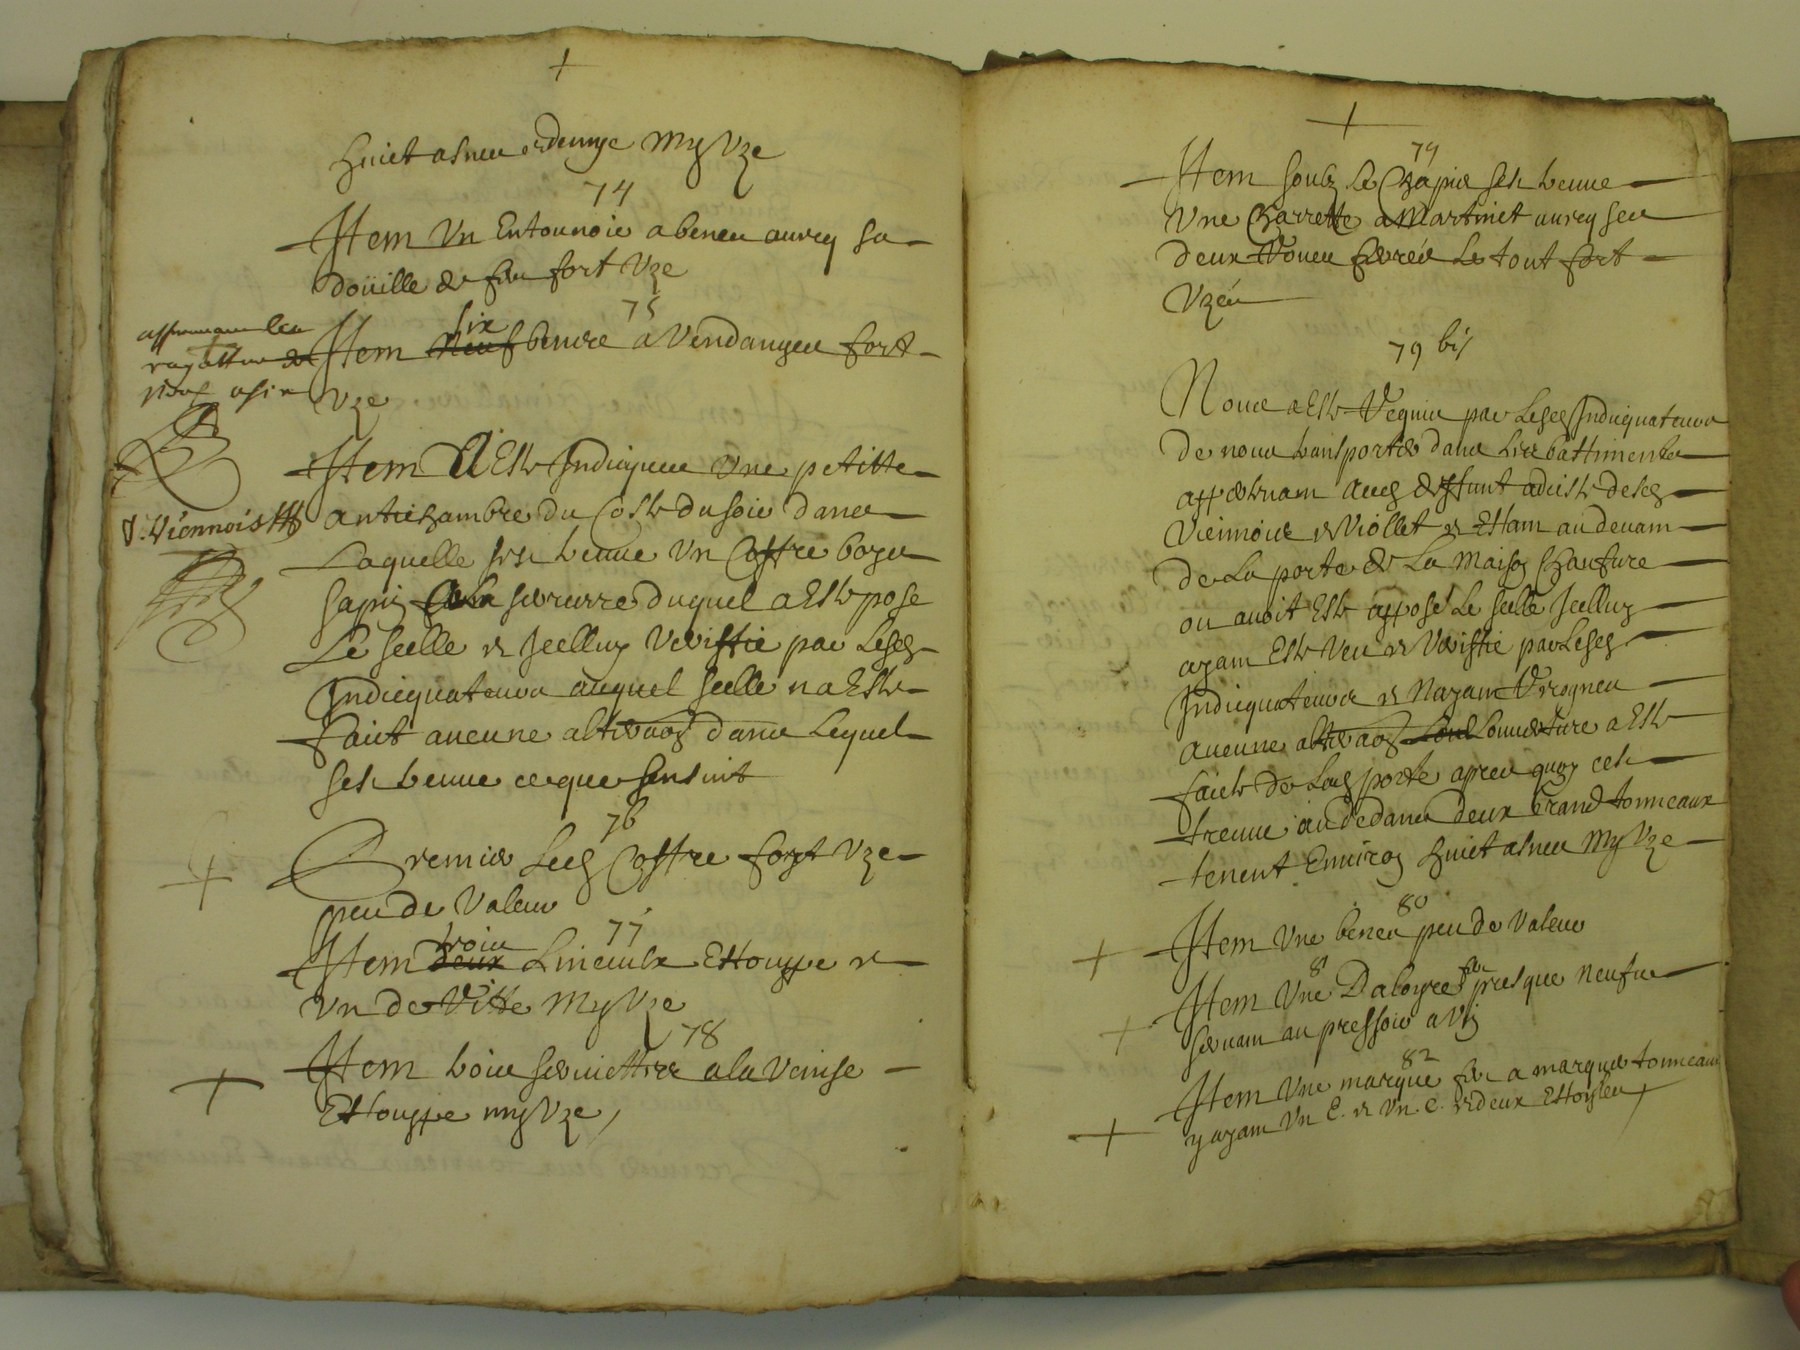 +
huict asnees & demye my Vze
74
Item Un Entonnoir a benes avecq sa
doüille de fer fort Vze
75
Item neuf six bennes a Vendanges fort
Vze
approuvant les
ratture de
neuf a six
Item A Este Indicquee Une petitte
antichambre du Coste du soir dans
Laquelle sest treuve Un Coffre boys
sapin a la serrurre duquel a Este pose
Le seelle & Icelluy Veriffie par Lesd
Indicquateurs auquel seelle na Este
faict aucune alteraon dans Lequel
sest treuve ce que sensuit
J: Viennois
76
Premier Led Coffre fort Vze
peu de Valeur
77
Item deux trois Linceulx Estouppe &
Un de Ritte my Vze
78
Item trois serviettes a la Venise
Estouppe my Vze
+
79
Item soubz Le Chapis sest treuve
Une Charrette a Martinet avecq ses
deux Roues ferrées Le tout fort
Vzée
79 bis
Nous a Este Requis par Lesd Indicquateurs
de nous transporter dans Les battiments
appartenam Aud deffunt aditste desd
Viennois & Viollet & Estam au devam
de La porte de La Maison Chaufure
ou avoit Este apposé Le seelle Icelluy
ayam Este Veu & Veriffie par Lesd
Indicquateurs & Nayam Recogneu
aucune alteraon Louverture a Este
faicte de Lad porte apres quoy cest
treuve au dedans deux Grand tonneaux
tenent Environ huict asnees my Vze
80
Item Une benes peu de Valeur
81
Item Une Daloyre fer presque neufve
servam au pressoir a Vin
82
Item Une marque fer a marquer tonneaux
y ayam Un E. & Un C. & deux Estoysles